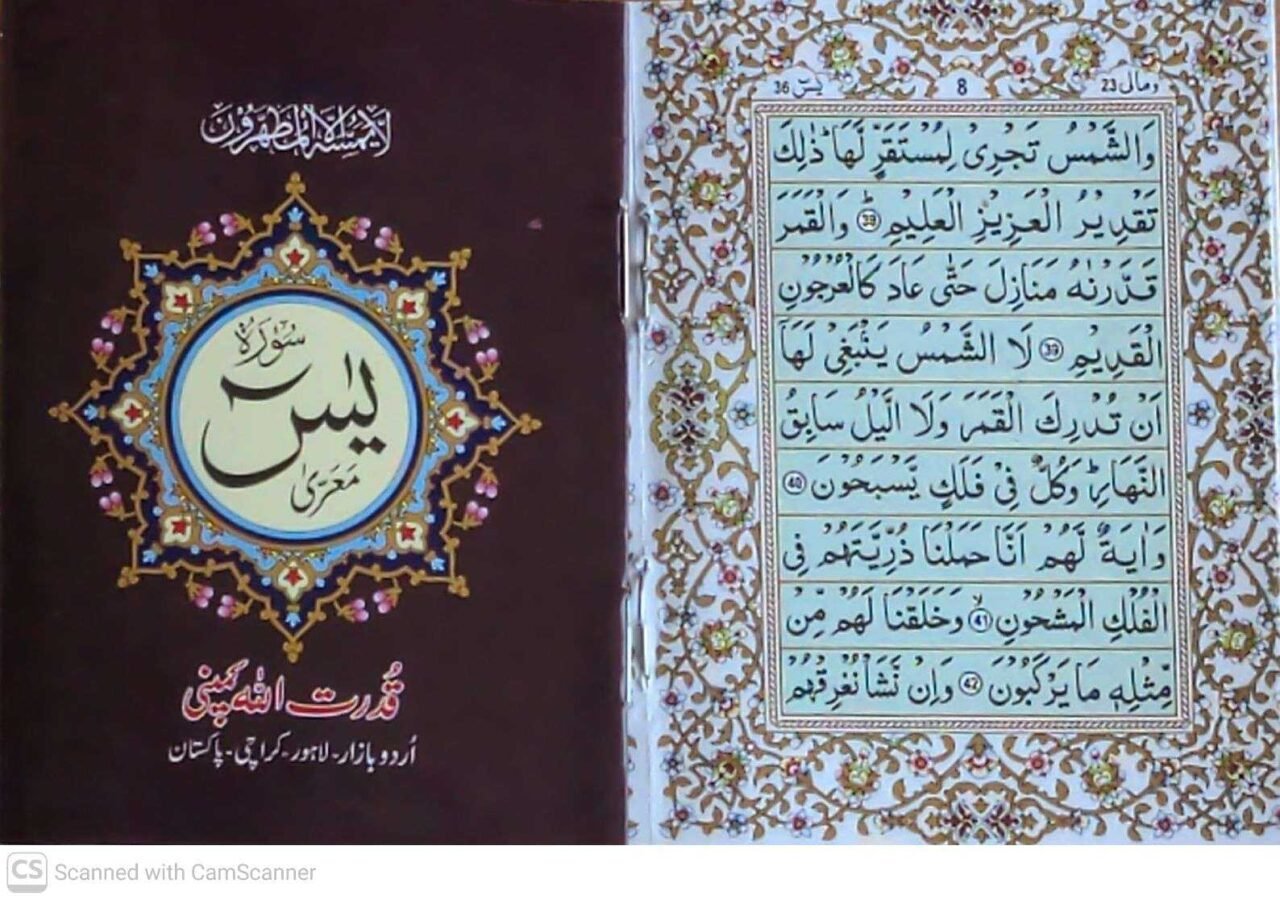 لَّا يَمَسُّهُ إِلَّا الْمُطَهَّرُونَ
سُوْرَةُ
يٰسٓ
مَعَرّیٰ
قُدرت اللہ کمپنی
اُردو بازار - لاہور - کراچی - پاکستان
ومالی 23
8
یٰسٓ 36
وَالشَّمْسُ تَجْرِىْ لِمُسْتَقَرٍّ لَّهَا ؕ ذٰلِكَ
تَقْدِيْرُ الْعَزِيْزِ الْعَلِيْمِ ؕ 38 وَالْقَمَرَ
قَدَّرْنٰهُ مَنَازِلَ حَتّٰى عَادَ كَالْعُرْجُوْنِ
الْقَدِيْمِ 39 لَا الشَّمْسُ يَنْۢبَغِىْ لَهَاۤ
اَنْ تُدْرِكَ الْقَمَرَ وَلَا الَّيْلُ سَابِقُ
النَّهَارِ ؕ وَكُلٌّ فِىْ فَلَكٍ يَّسْبَحُوْنَ 40
وَاٰيَةٌ لَّهُمْ اَنَّا حَمَلْنَا ذُرِّيَّتَهُمْ فِى
الْفُلْكِ الْمَشْحُوْنِ ۙ 41 وَخَلَقْنَا لَهُمْ مِّنْ
مِّثْلِهٖ مَا يَرْكَبُوْنَ 42 وَاِنْ نَّشَاْ نُغْرِقْهُمْ
CS Scanned with CamScanner